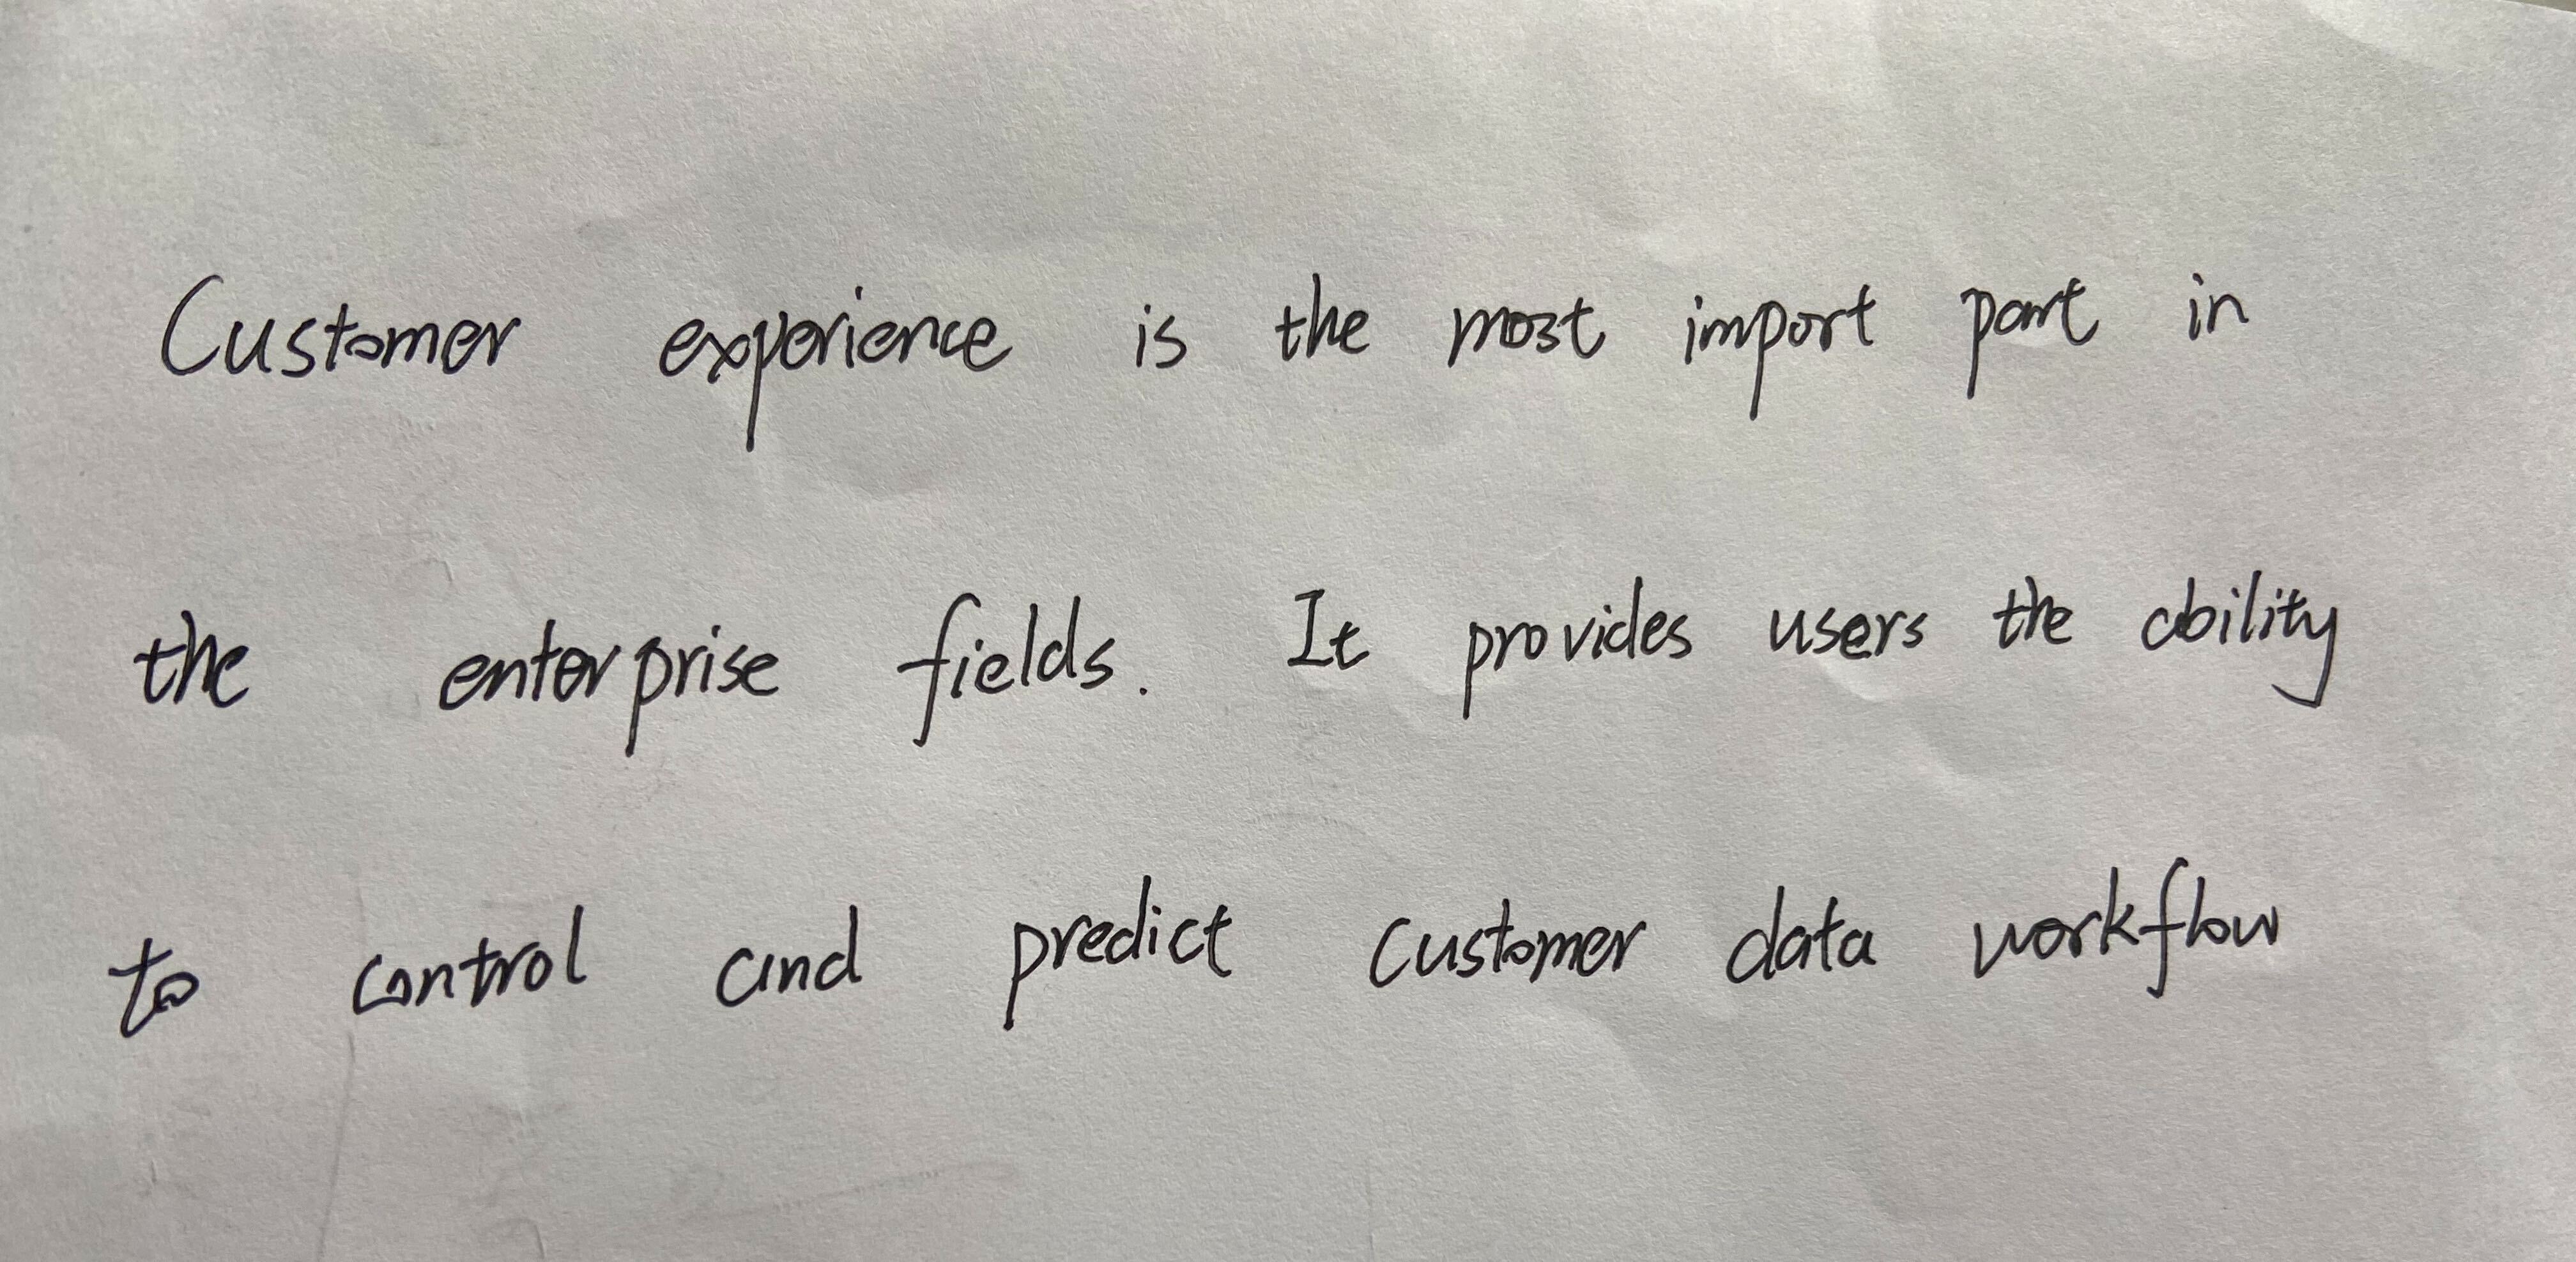 Customer experience is the most import part in
the enterprise fields. It provides users the ability
to control and predict customer data workflow